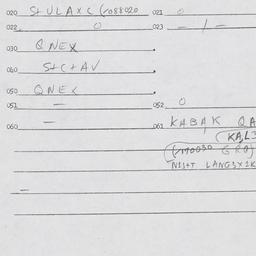 020 S+ULAXC (/088020 021 0
022 0 023 - / -
030 QNEX
040 S+C+AV
050 QNEX
051 - 052 0
060 - 061 KABAK QA
(KAL3
(/190030 GRO)
N1S+T LANG3X1K
-